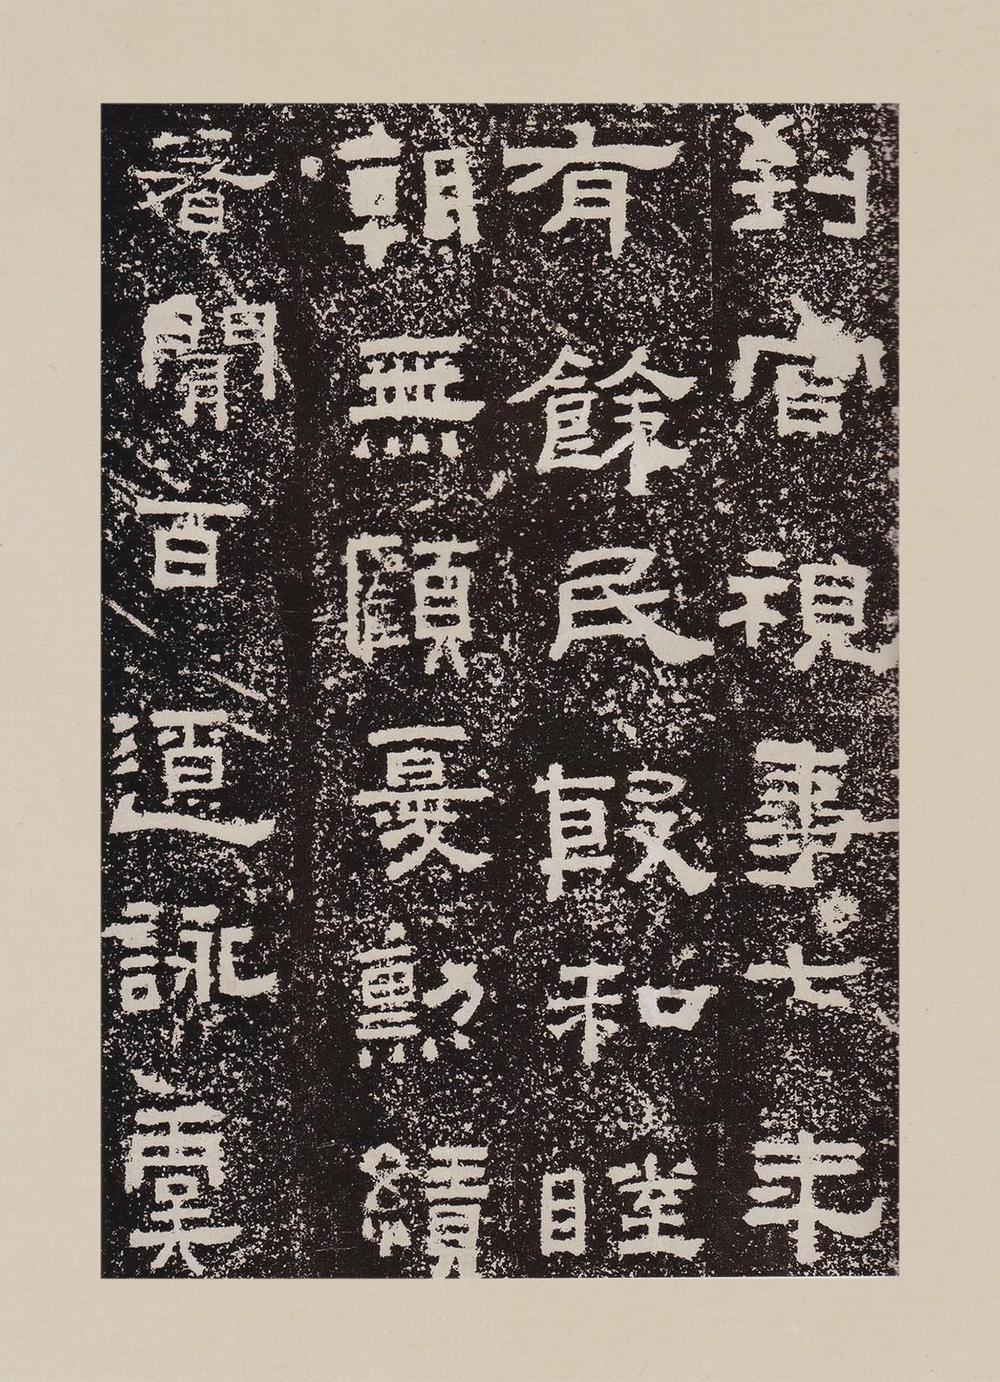 到官視事七年
有餘民殷和睦
朝無顧憂勳績
著聞百遼詠虞